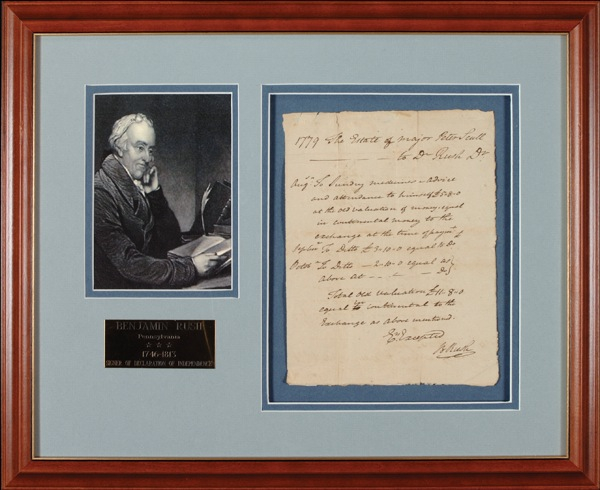 BENJAMIN RUSH
Pennsylvania
1746-1813
SIGNER OF DECLARATION OF INDEPENDENCE
1779 The Estate of Major Peter Scull
to Dr Rush Dr
To Sundry medicines advice
and attendance to
at the old valuation of money equal
in continental money to the
exchange at the time of
To Ditto £3-10-0 equal
To Ditto 2-10-0 equal as
above
Total old valuation £11-8-0
equal in continental to the
Exchange as above mentiond.
Excepted
B Rush